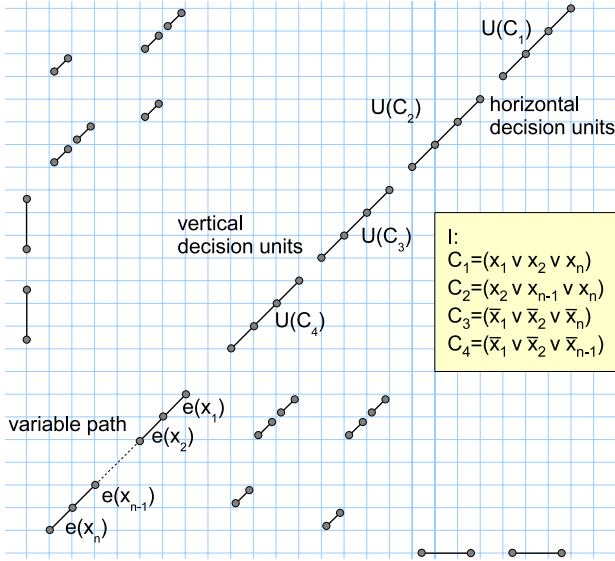 U(C₁)
U(C₂)
horizontal
decision units
vertical
decision units
U(C₃)
U(C₄)
I:
C₁=(x₁ v x₂ v xₙ)
C₂=(x₂ v xₙ₋₁ v xₙ)
C₃=(x̅₁ v x̅₂ v x̅ₙ)
C₄=(x̅₁ v x̅₂ v x̅ₙ₋₁)
variable path
e(x₁)
e(x₂)
e(xₙ₋₁)
e(xₙ)